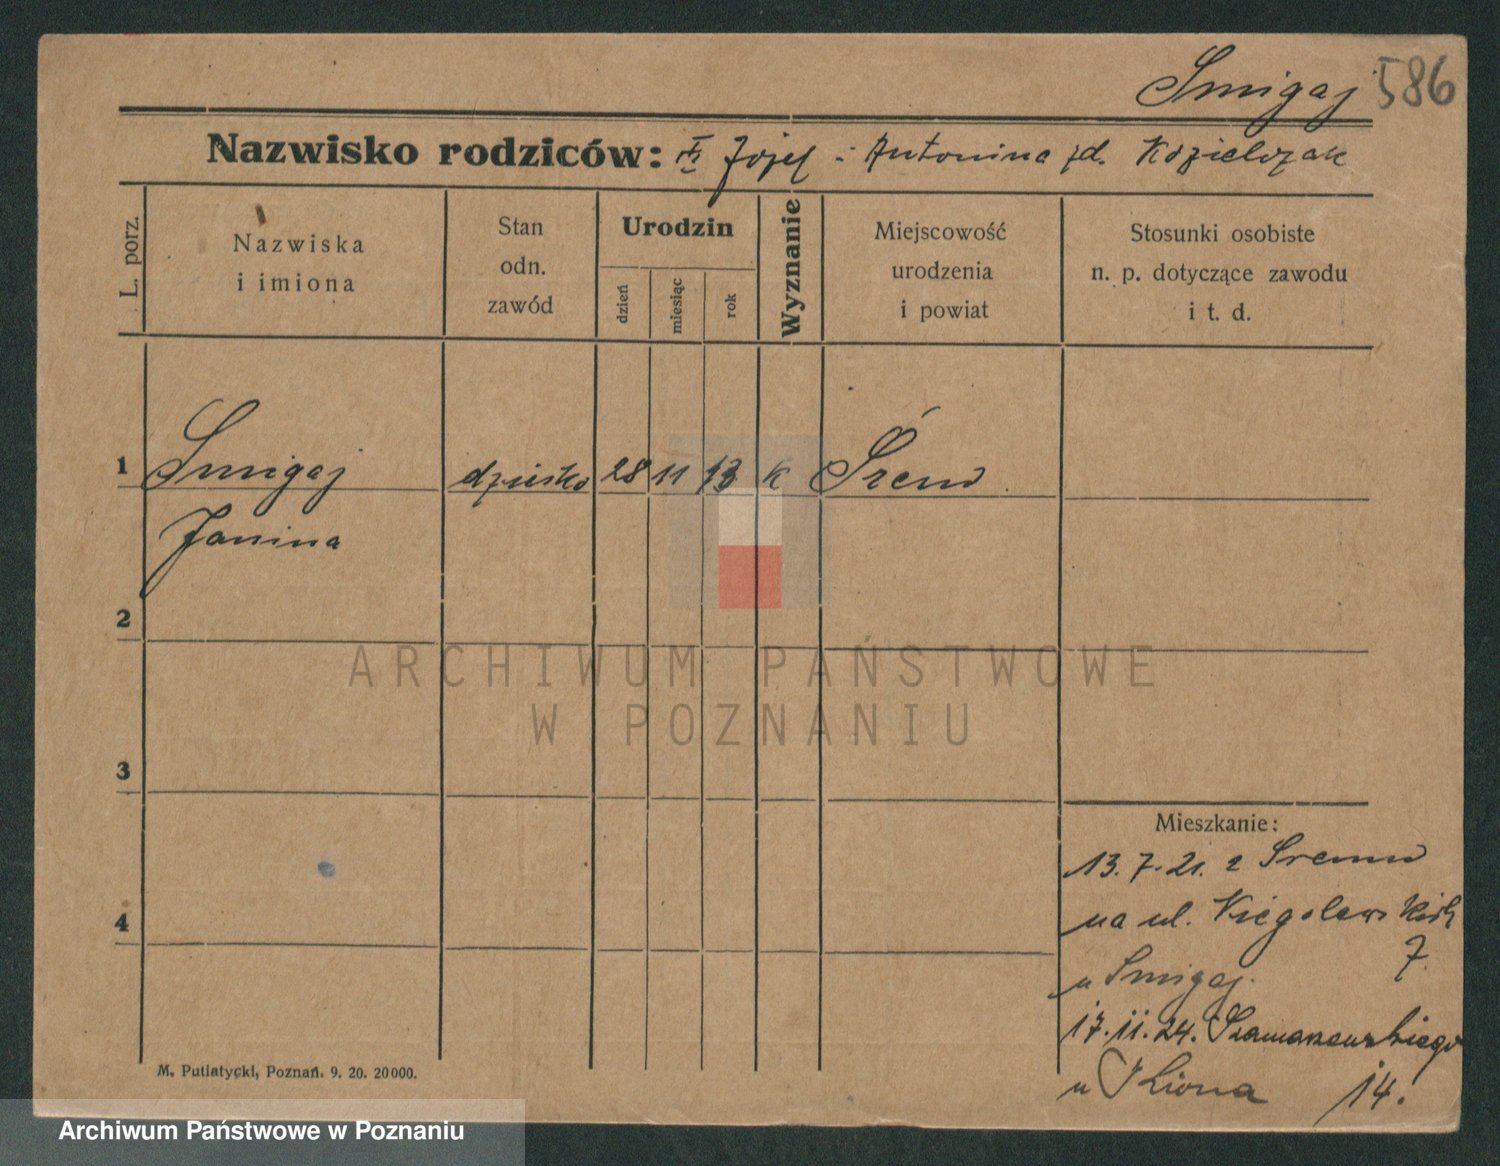 Smigaj 586
Nazwisko rodziców: Józef i Antonina zd. Kozielczak
L. porz.
Nazwiska
i imiona
Stan
odn.
zawód
Urodzin
dzień
miesiąc
rok
Wyznanie
Miejscowość
urodzenia
i powiat
Stosunki osobiste
n. p. dotyczące zawodu
i t. d.
1 Smigaj dziecko 28 11 13 k Śrem
Janina
2
3
4
Mieszkanie:
13.7.21. z Śremu
na ul.
7.
u Smigaj.
17.11.24. Szamarzewskiego
u 14.
M. Putiatycki, Poznań. 9. 20. 20000.
ARCHIWUM PAŃSTWOWE
W POZNANIU
Archiwum Państwowe w Poznaniu